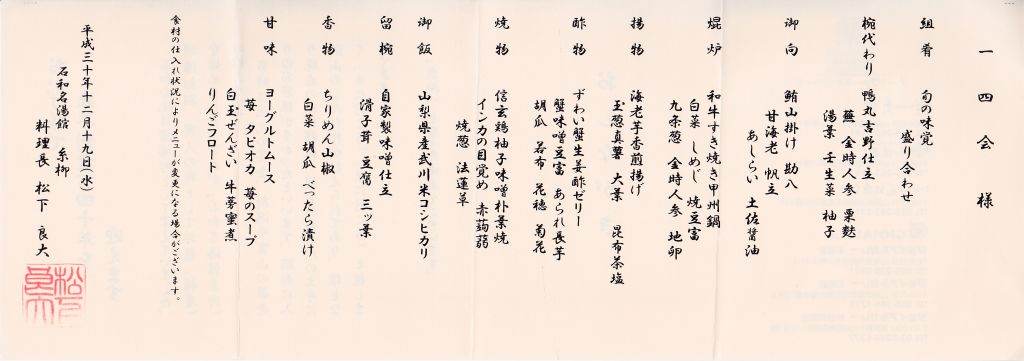 一四会様
組肴 旬の味覚
盛り合わせ
椀代わり 鴨丸吉野仕立
蕪 金時人参 粟麩
湯葉 壬生菜 柚子
御向 鮪山掛け 勘八
甘海老 帆立
あしらい 土佐醤油
焜炉 和牛すき焼き甲州鍋
白菜 しめじ 焼豆富
九条葱 金時人参 地卵
揚物 海老芋香煎揚げ
玉葱真薯 大葉 昆布茶塩
酢物 ずわい蟹生姜酢ゼリー
蟹味噌豆富 あられ長芋
胡瓜 若布 花穂 菊花
焼物 信玄鶏柚子味噌朴葉焼
インカの目覚め 赤蒟蒻
焼葱 法蓮草
御飯 山梨県産武川米コシヒカリ
留椀 自家製味噌仕立
滑子茸 豆腐 三ッ葉
香物 ちりめん山椒
白菜 胡瓜 べったら漬け
甘味 ヨーグルトムース
苺 タピオカ 苺のスープ
白玉ぜんざい 牛蒡蜜煮
りんごコロート
食材の仕入れ状況によりメニューが変更になる場合がございます。
平成三十年十二月十九日(水)
石和名湯館 糸柳
料理長 松下 良大